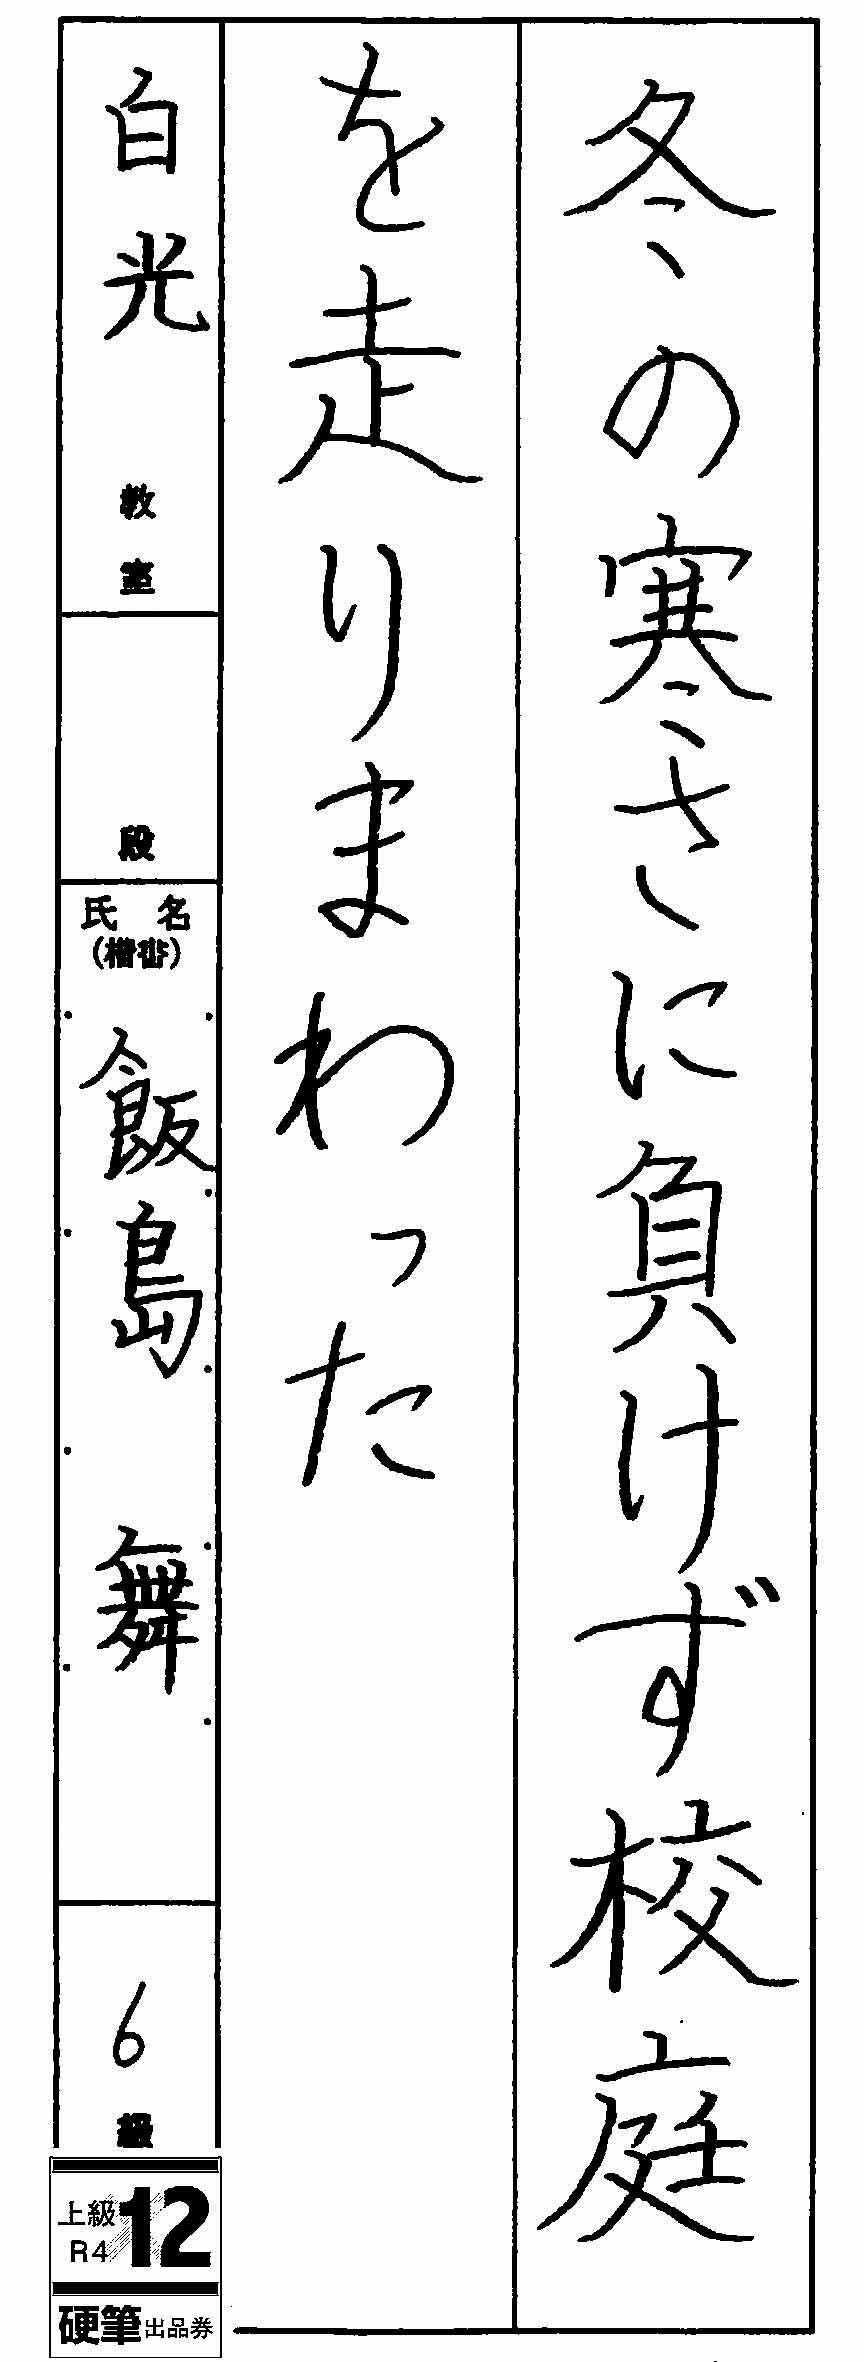 冬の寒さに負けず校庭
を走りまわった
白光 教室
段
氏名
(楷書)
飯島 舞
6級
上級 12
R4
硬筆出品券